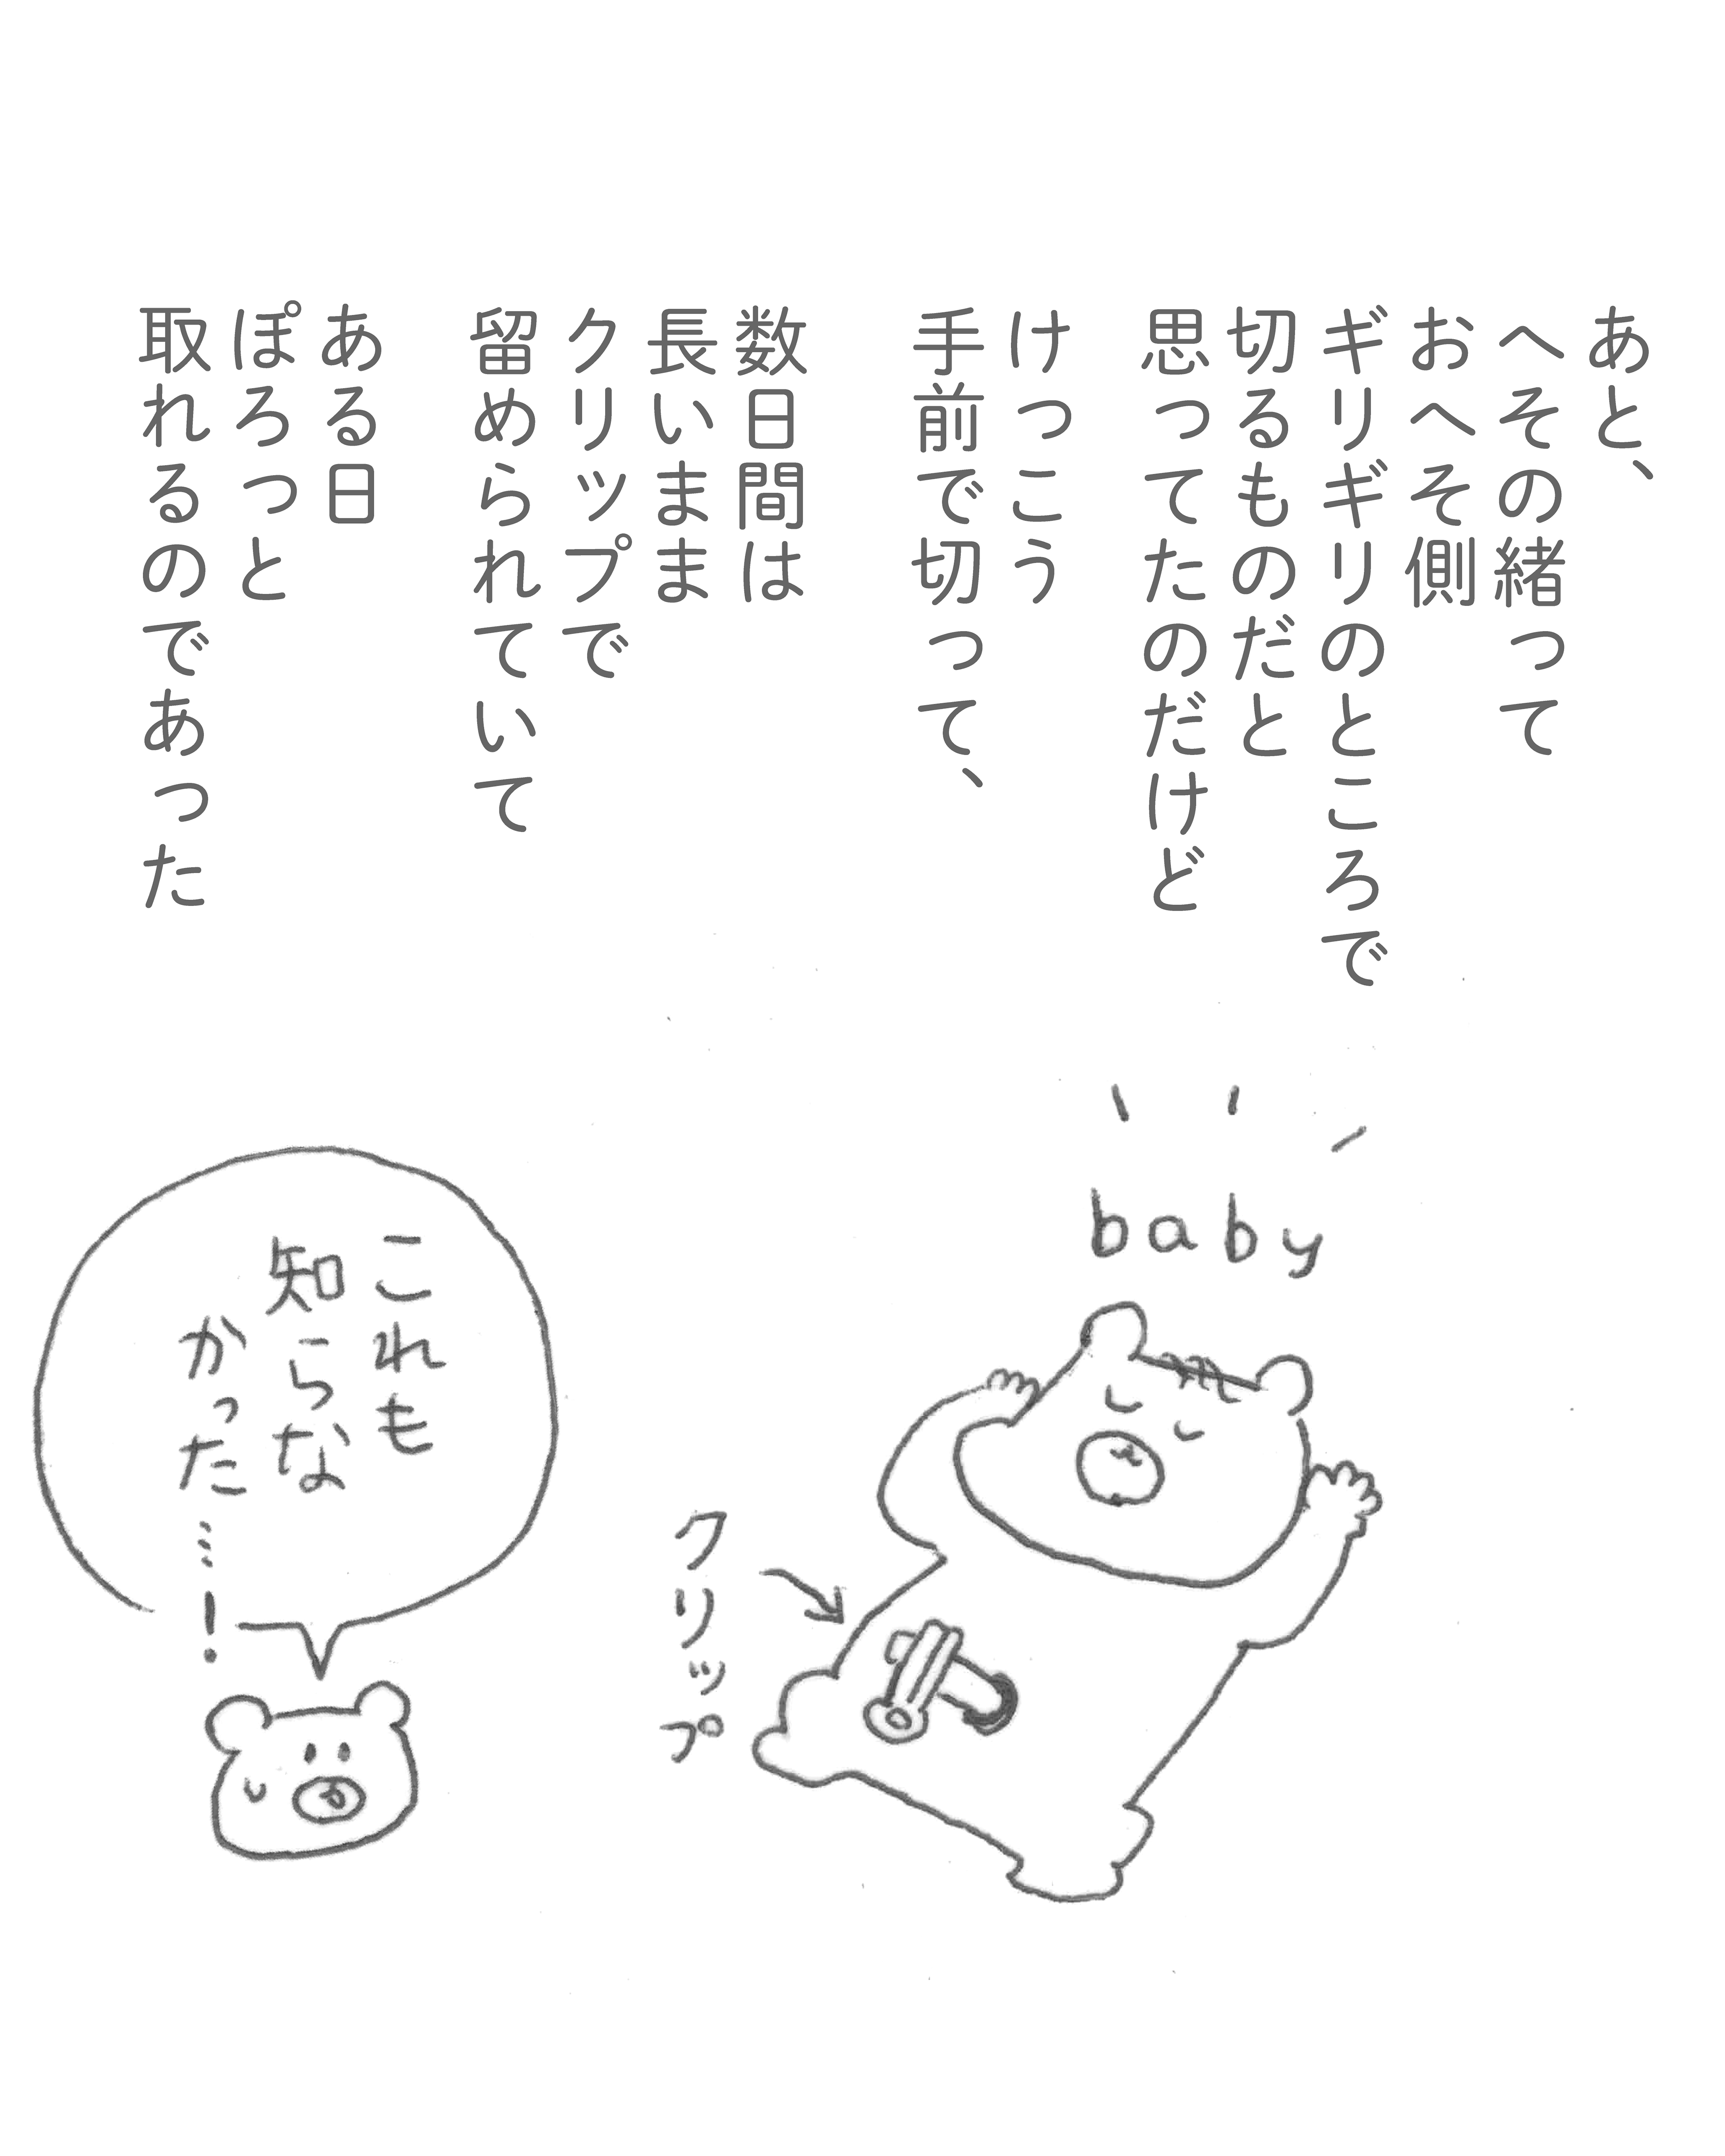 あと、
へその緒って
おへそ側
ギリギリのところで
切るものだと
思ってたのだけど
けっこう
手前で切って、
数日間は
長いまま
クリップで
留められていて
ある日
ぽろっと
取れるのであった
baby
クリップ
これも
知らな
かった…！